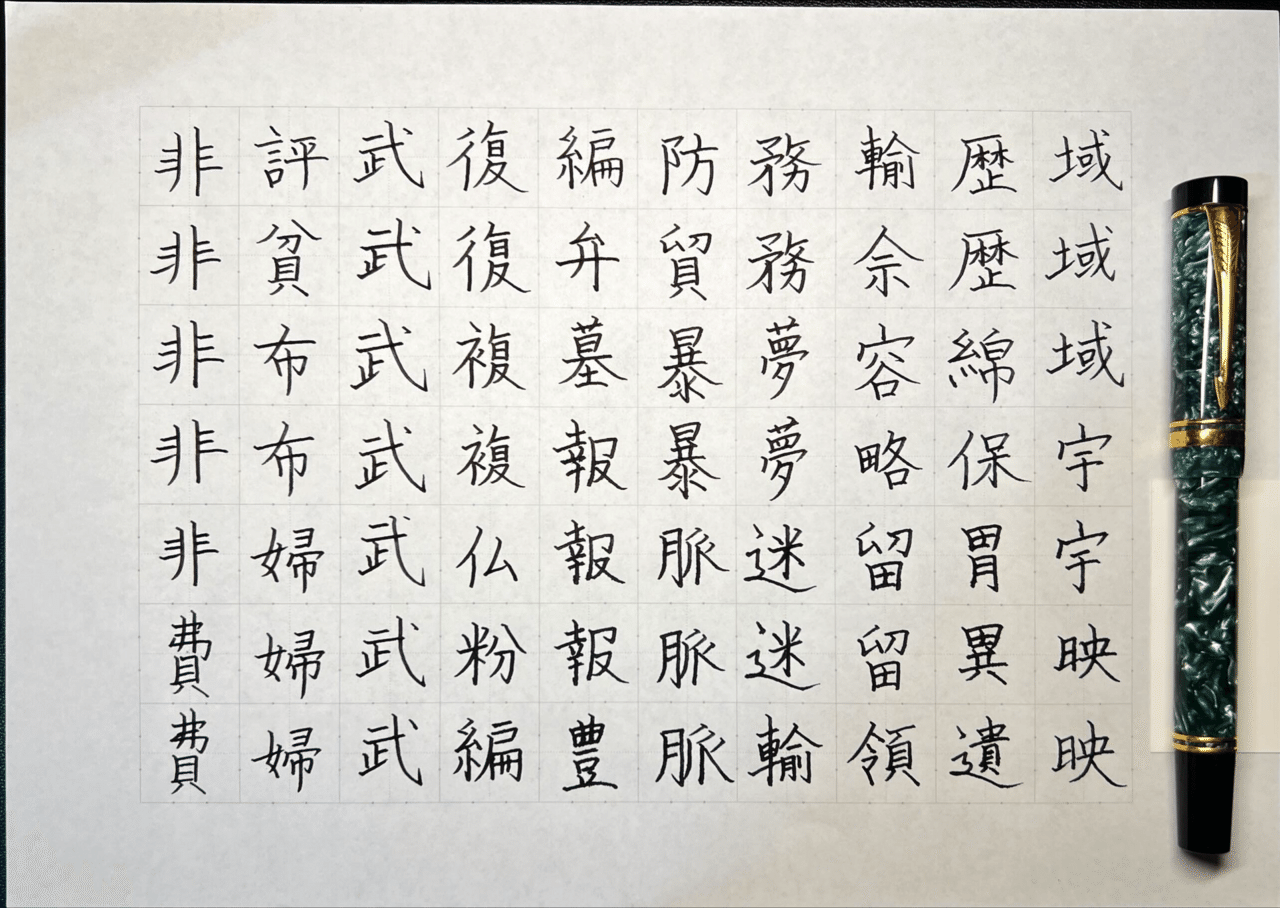 非非非非非費費
評貧布布婦婦婦
武武武武武武武
復復複複仏粉編
編弁墓報報報豊
防貿暴暴脈脈脈
務務夢夢迷迷輸
輸余容略留留領
歴歴綿保胃異遺
域域域宇宇映映